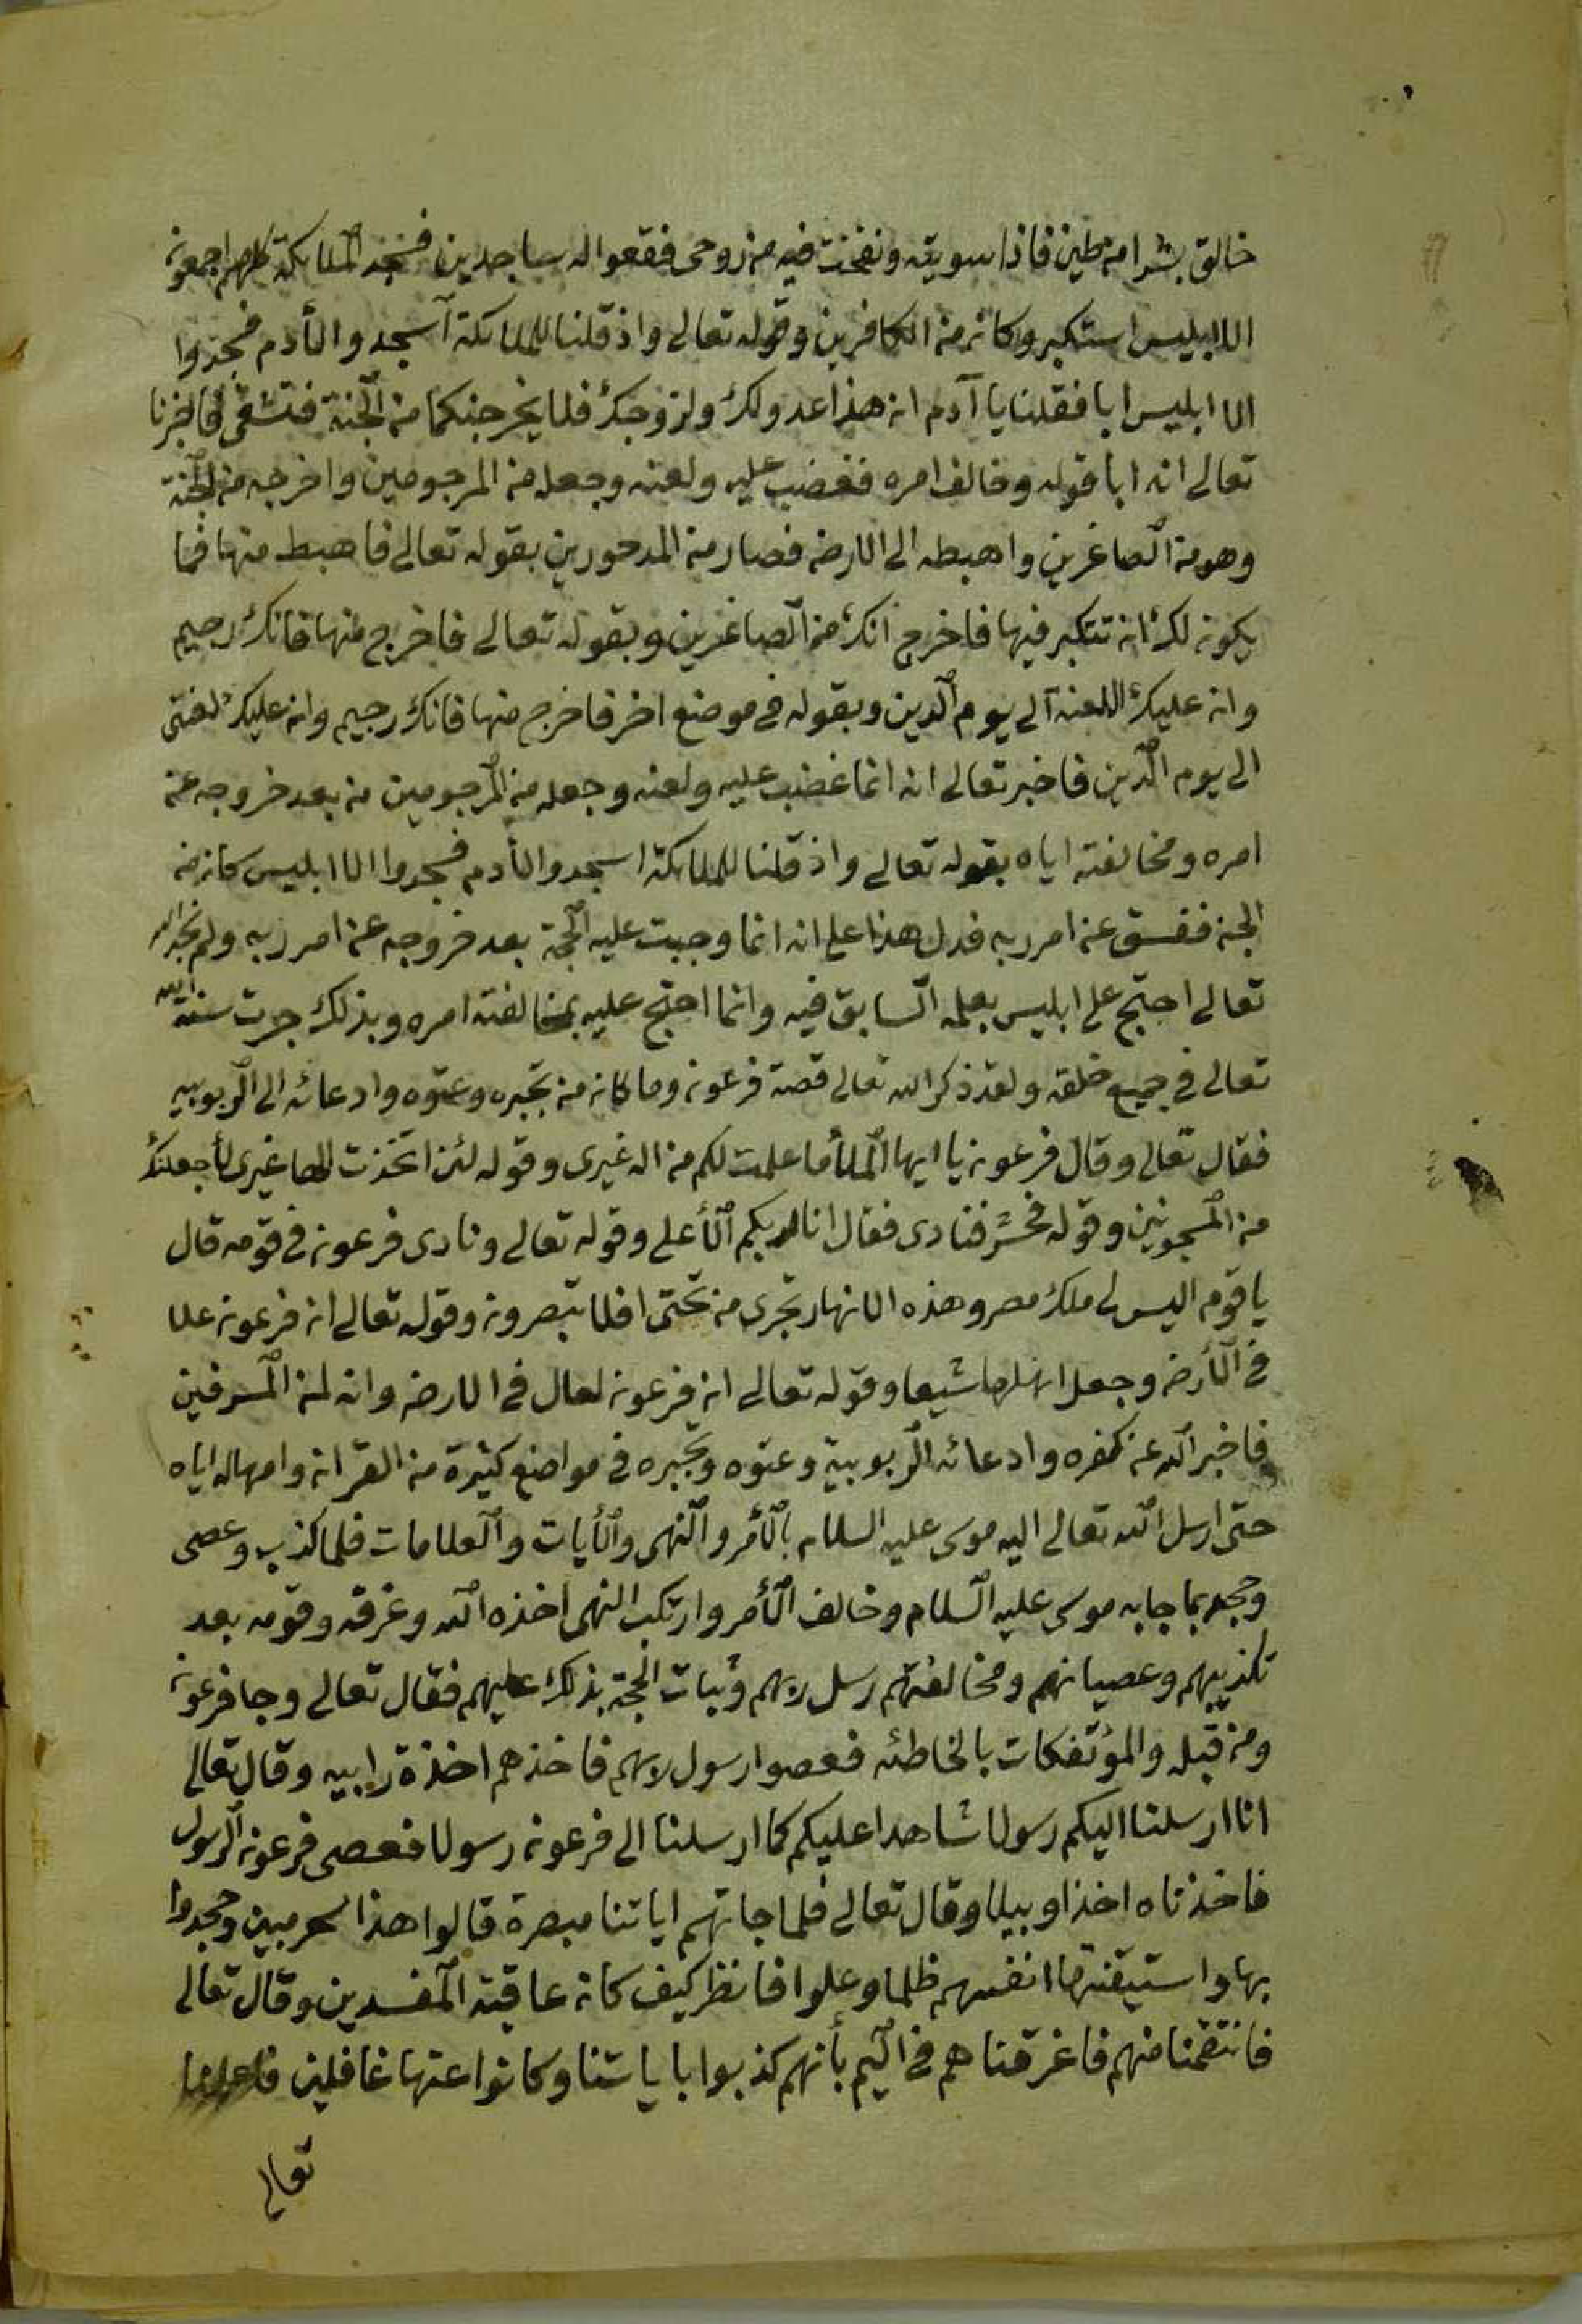 خالق بشرا من طين فاذا سويته ونفخت فيه من روحى فقعوا له ساجدين فسجد الملائكة كلهم اجمعون
الا ابليس استكبر وكان من الكافرين وقوله تعالى واذ قلنا للملائكة آسجدوا لأدم فسجدوا
الا ابليس ابا فقلنا يا آدم ان هذا عدو لك ولزوجك فلا يخرجنكما من الجنة فتشقى فاخبرنا
تعالى انه ابا قوله وخالف امره فغضب عليه ولعنه وجعله من المرجومين واخرجه من الجنة
وهو من الصاغرين واهبطه الى الارض فصار من المدحورين بقوله تعالى فاهبط منها فما
يكون لك ان تتكبر فيها فاخرج انك من الصاغرين وبقوله تعالى فاخرج منها فانك رجيم
وان عليك اللعنة الى يوم الدين وبقوله في موضع اخر فاخرج منها فانك رجيم وان عليك لعنتى
الى يوم الدين فاخبر تعالى انه انما غضب عليه ولعنه وجعله من المرجومين من بعد خروجه عن
امره ومخالفته اياه بقوله تعالى واذ قلنا للملائكة اسجدوا لأدم فسجدوا الا ابليس كان من
الجن ففسق عن امر ربه فدل هذا على انه انما وجبت عليه الحجة بعد خروجه عن امر ربه ولم نجد الله
تعالى احتج على ابليس بعلمه السابق فيه وانما احتج عليه بمخالفته امره وبذلك جرت سنة الله
تعالى في جميع خلقه ولقد ذكر الله تعالى قصة فرعون وما كان من تجبره وعتوه وادعائه الى الربوبيه
فقال تعالى وقال فرعون يا ايها الملأ ما علمت لكم من اله غيرى وقوله لئن اتخذت الها غيرى لأجعلنك
من المسجونين وقوله فحشر فنادى فقال انا ربكم الأعلى وقوله تعالى ونادى فرعون في قومه قال
يا قوم اليس لى ملك مصر وهذه الانهار تجرى من تحتى افلا تبصرون وقوله تعالى ان فرعون علا
في الأرض وجعل اهلها شيعا وقوله تعالى ان فرعون لعال في الارض وانه لمن المسرفين
فاخبر الله عن كفره وادعائه الربوبية وعتوه وتجبره في مواضع كثيرة من القران وامهاله اياه
حتى ارسل الله تعالى اليه موسى عليه السلام بالأمر والنهى والأيات والعلامات فلما كذب وعصى
وجحد بما جا به موسى عليه السلام وخالف الأمر وارتكب النهى اخذه الله وغرقه وقومه بعد
تكذيبهم وعصيانهم ومخالفتهم رسل ربهم وثبات الحجة بذلك عليهم فقال تعالى وجا فرعون
ومن قبله والمؤتفكات بالخاطئه فعصوا رسول ربهم فاخذهم اخذة رابيه وقال تعالى
انا ارسلنا اليكم رسولا شاهدا عليكم كما ارسلنا الى فرعون رسولا فعصى فرعون الرسول
فاخذناه اخذا وبيلا وقال تعالى فلما جاتهم اياتنا مبصرة قالوا هذا سحر مبين وجحدوا
بها واستيقنتها انفسهم ظلما وعلوا فانظر كيف كان عاقبة المفسدين وقال تعالى
فانتقمنا منهم فاغرقناهم في اليم بأنهم كذبوا باياتنا وكانوا عنها غافلين
تعالى